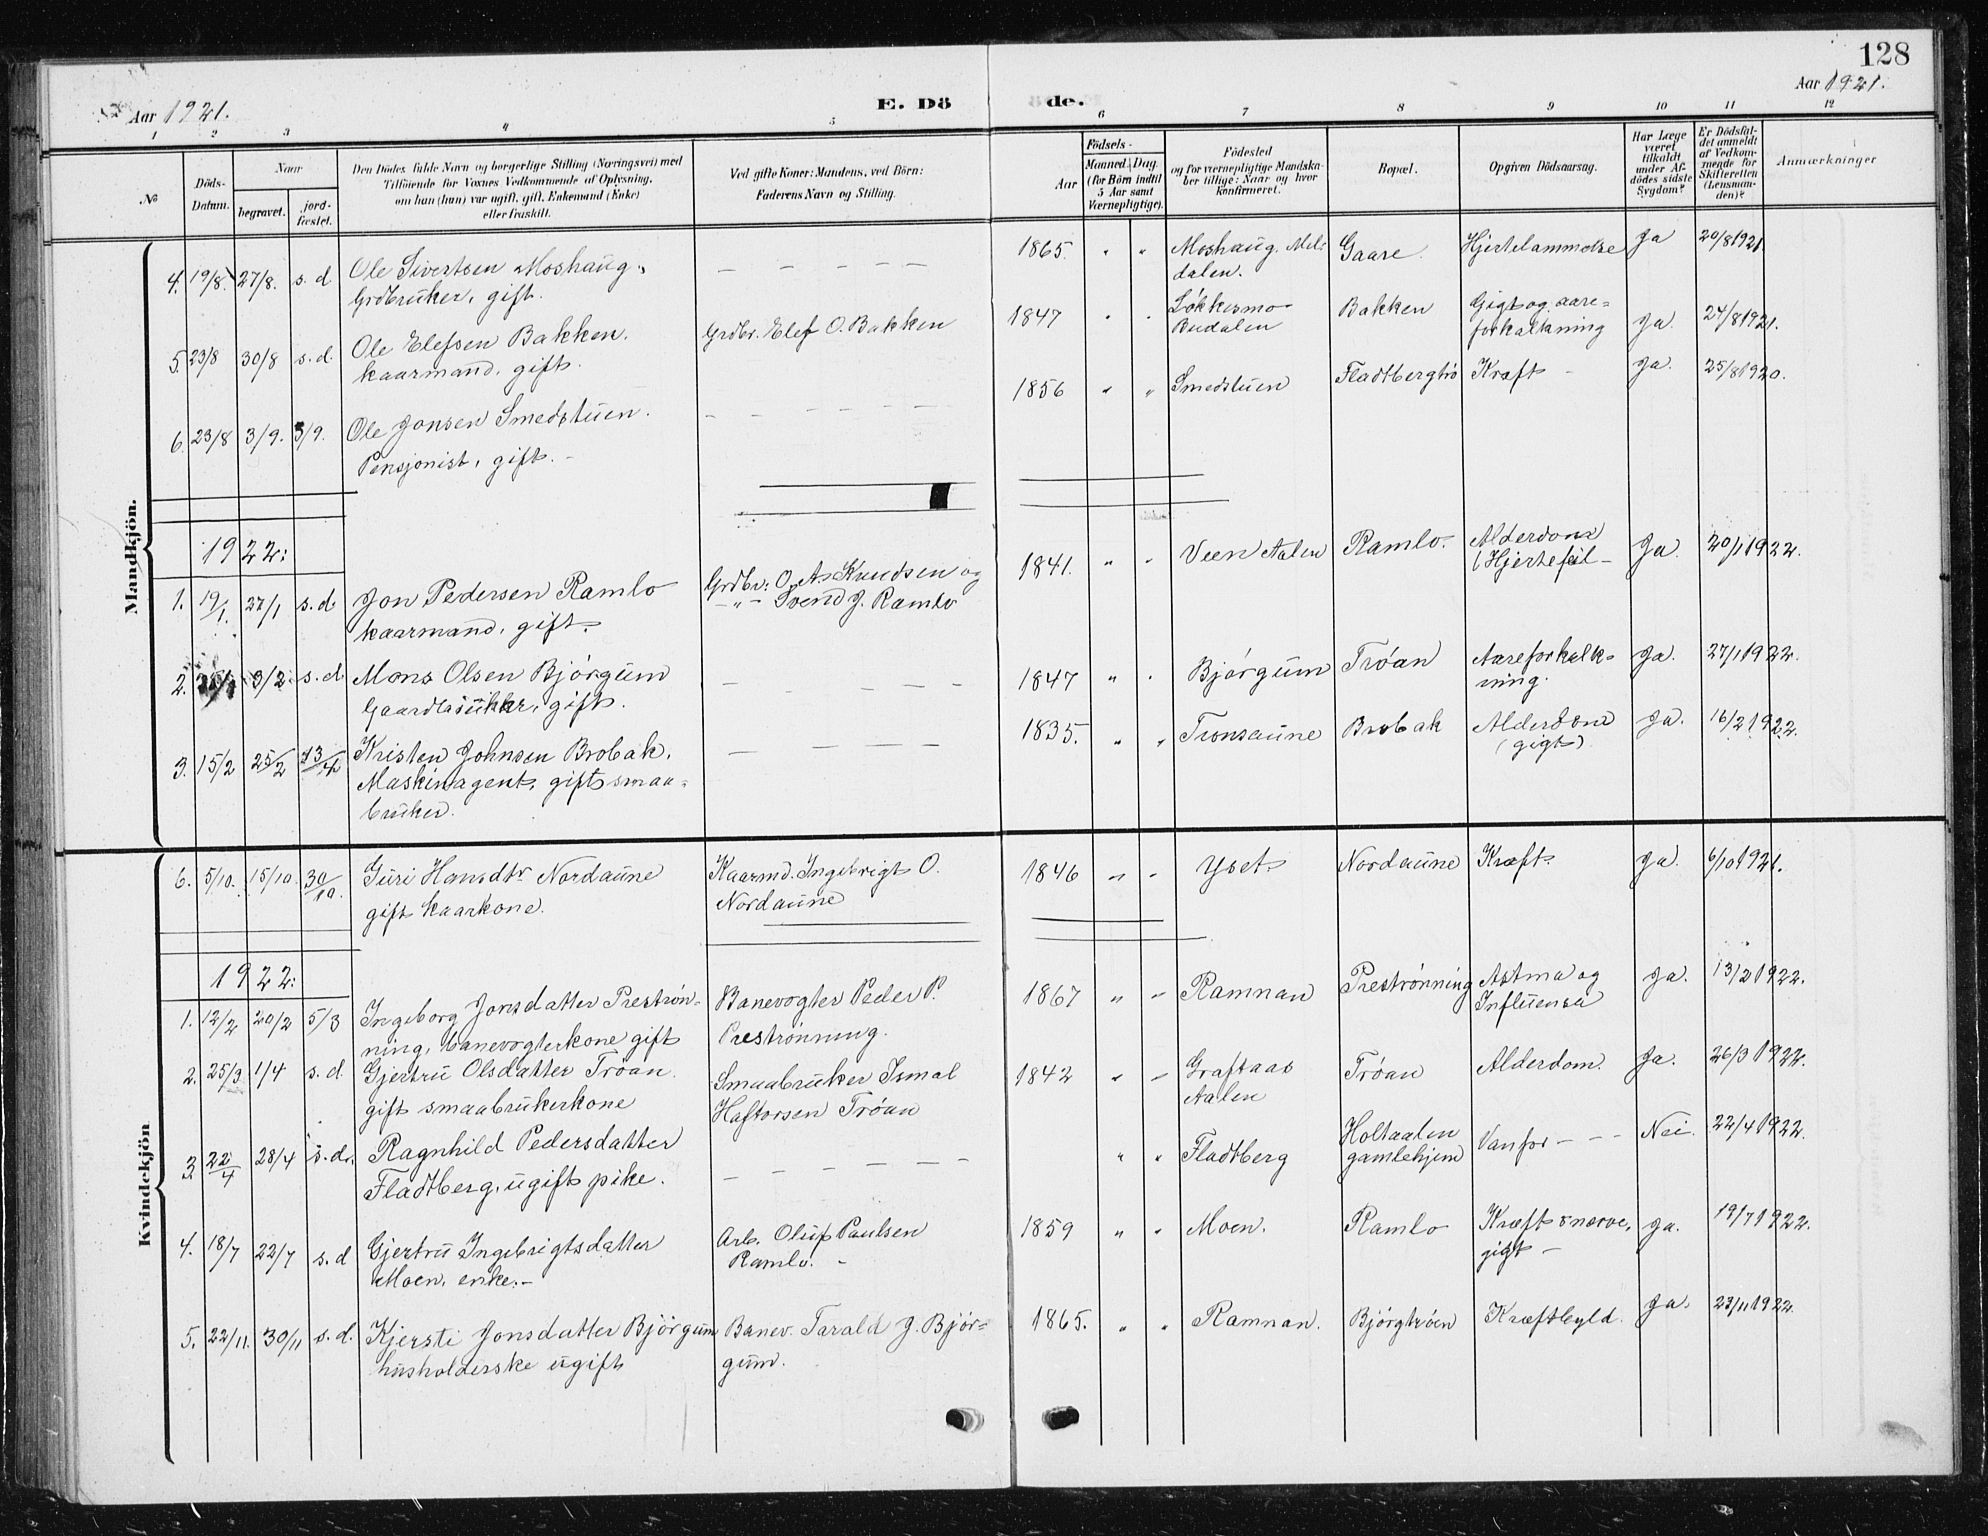 128
Aar 1921.
E. Döde.
Aar 1921.
1 2 3 4 5 6 7 8 9 10 11 12
№
Döds-Datum.
Naar
begravet.
jordfæstet.
Den Dödes fulde Navn og borgerlige Stilling (Næringsvei) med
Tilföiende for Voxnes Vedkommende af Oplysning,
om han (hun) var ugift, gift, Enkemand (Enke)
eller fraskilt.
Ved gifte Koner: Mandens, ved Börn:
Faderens Navn og Stilling.
Födsels-
Aar
Maaned. Dag.
(for Börn indtil
5 Aar samt
Værnepligtige).
Födested
og for værnepligtige Mandska-
ber tillige: Naar og hvor
konfirmeret.
Bopæl.
Opgiven Dödsaarsag.
Har Læge
været
tilkaldt
under Af-
dödes sidste
Sygdom?
Er Dödsfal-
det anmeldt
af Vedkom-
mende for
Skifteretten
(Lensman-
den)?
Anmærkninger
Mandkjön.
4. 19/8. 27/8. s. d. Ole Sivertsen Moshaug, — — — — — 1865. " " Moshaug. Mel- Gaare. Hjertelammelse Ja 20/8 1921
Grdbruker, gift. dalen.
5. 23/8 30/8 s. d. Ole Elefsen Bakken. Grdbr. Elef O. Bakken 1847 " " Løkkesmo Bakken Gigt og aare- Ja. 24/8 1921.
kaarmand, gift. Budalen forkalkning
6. 23/8 3/9. 3/9. Ole Jonsen Smedstuen. — — — — — 1856 " " Smedstuen Fladtbergtrø Kræft - Ja. 25/8 1920.
Pensjonist, gift. -
1922:
1. 19/1. 27/1 s. d. Jon Pedersen Ramlo Grdbr: O. As. Knudsen og 1841. " " Veen Aalen Ramlo. Alderdom Ja. 20/1 1922.
kaarmand, gift. — " — Svend J. Ramlo (Hjertefeil -
2. 3/2. s. d. Mons Olsen Bjørgum — — — — — 1847 " " Bjørgum Trøan Aareforkalk- Ja. 27/1 1922.
Gaardbruker, gift. ning.
3. 15/2 25/2 23/4 Kristen Johnsen Brobak. — — — — — 1835. " " Tronsaune Brobak Alderdom Ja. 16/2 1922.
Maskinagent, gift smaa- (gigt)
bruker.
Kvindekjön
6. 5/10. 15/10. 30/10. Guri Hansdtr Nordaune Kaarmd. Ingebrigt O. 1846 " " Yset. Nordaune Kræft. Ja. 6/10 1921.
gift kaarkone. Nordaune
1922:
1. 12/2 20/2 5/3 Ingeborg Jonsdatter Prestrøn- Banevogter Peder P. 1867 " " Ramnan Prestrønning Astma og Ja. 13/2 1922.
ning, banevogterkone gift Prestrønning. Influensa
2. 25/3 1/4 s. d. Gjertru Olsdatter Trøan. Smaabruker Ismal 1842 " " Graftaas Trøan Alderdom. Ja. 26/3 1922.
gift smaabrukerkone Haftorsen Trøan Aalen
3. 22/4 28/4 s. d. Ragnhild Pedersdatter — — — — — " " Fladtberg Holtaalen Vanfør - - - Nei. 22/4 1922.
Fladtberg, ugift pike. gamlehjem
4. 18/7 22/7 s. d Gjertru Ingebrigtsdatter Arb. Oluf Paulsen 1859 " " Moen. Ramlo Kræft nerve, Ja. 19/7 1922.
Moen, enke.- Ramlo. - gigt -
5. 22/11. 30/11 s. d. Kjersti Jonsdatter Bjørgum Banev. Tarald J. Bjør- 1865. " " Ramnan. Bjørgtrøen Kræftbyld. Ja. 23/11 1922.
husholderske ugift gum.